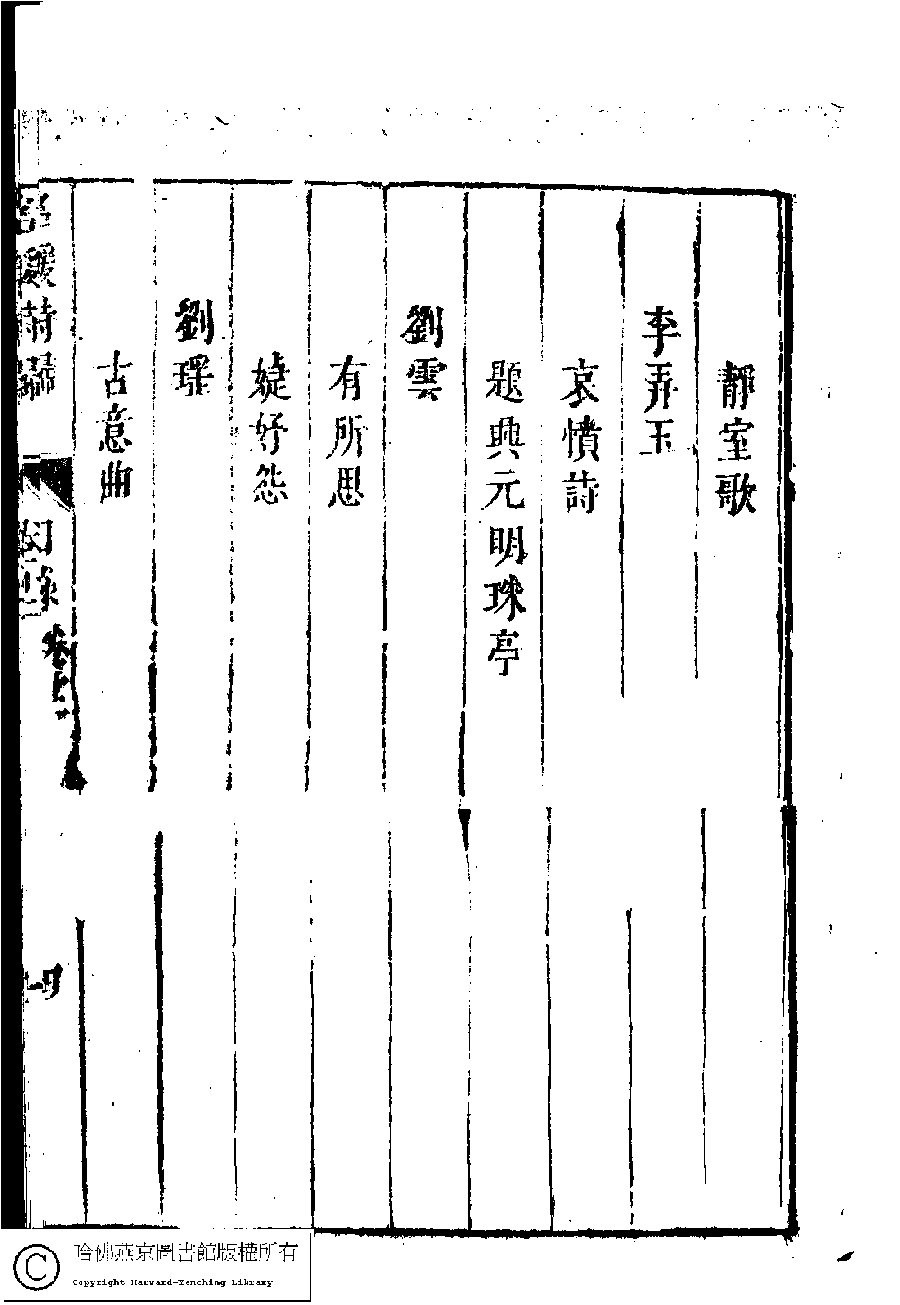 靜室歌
李弄玉
哀憤詩
題興元明珠亭
劉雲
有所思
婕妤怨
劉瑶
古意曲
目錄
四
哈佛燕京圖書館版權所有
Copyright Harvard-Yenching Library